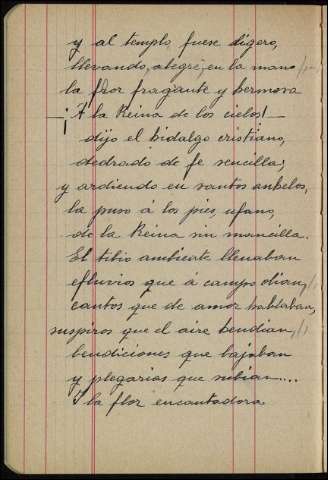 y al templo fuese ligero,
llevando, alegre, en la mano
la flor fragante y hermosa
—¡A la Reina de los cielos!—
dijo el hidalgo cristiano,
dechado de fe sencilla;
y ardiendo en santos anhelos,
la puso á los pies, ufano,
de la Reina sin mancilla.
El tibio ambiente llenaban
efluvios que á campo olían,
cantos que de amor hablaban,
suspiros que el aire hendían,
bendiciones que bajaban
y plegarias que subían....
Y la flor encantadora